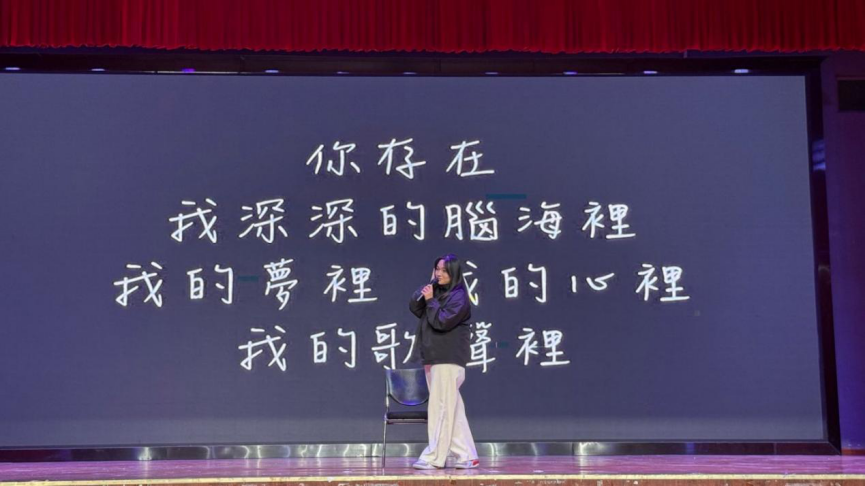 你存在
我深深的腦海裡
我的夢裡 我的心裡
我的歌聲裡